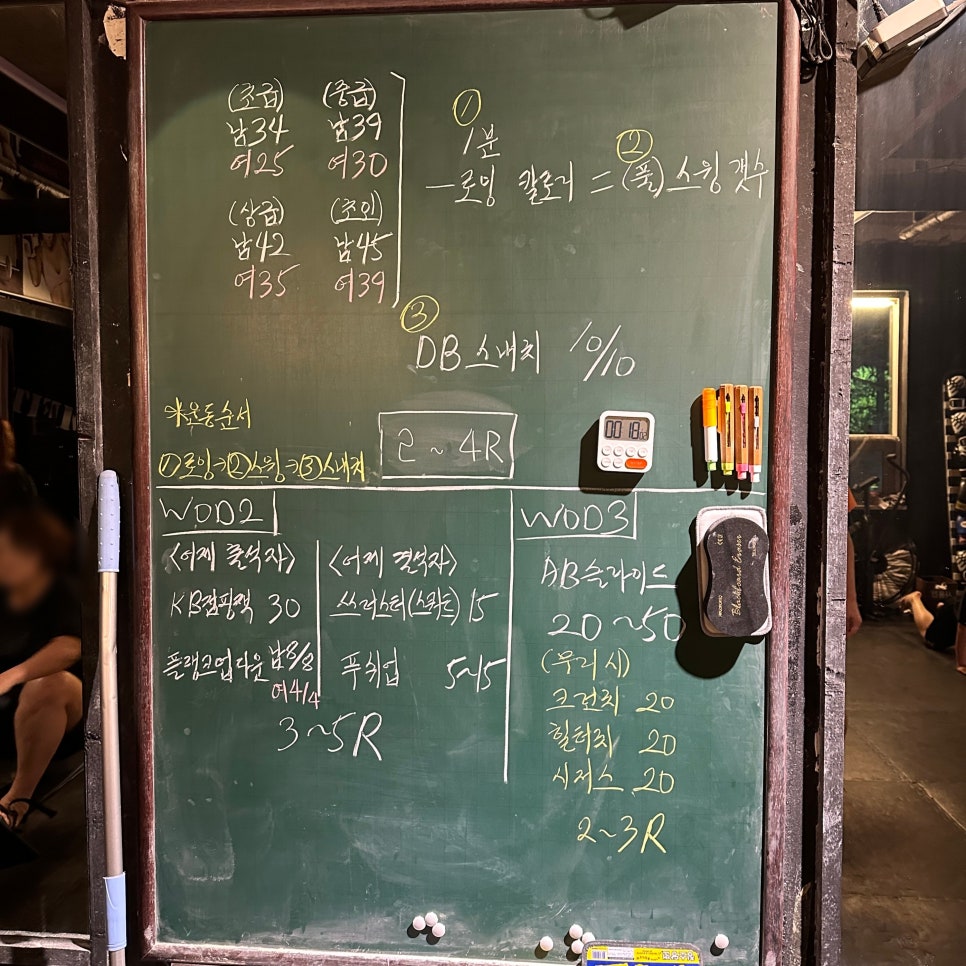 (초급) (중급)
남34 남39
여25 여30
(상급) (초인)
남42 남45
여35 여39
①
1분
②
로잉 칼로리 = (풀)스윙 갯수
③
DB 스내치 10/10
*운동순서
①로잉→②스윙→③스내치
2 ~ 4R
0018
WOD2
<어제 출석자> <어제 결석자>
KB점핑잭 30 쓰러스터(스쿼드) 15
플랭크업다운 남8/8 푸쉬업 5~15
여4/4
3~5R
WOD3
AB슬라이드
20~50
(무리 시)
크런치 20
힐터치 20
시저스 20
2~3R
Blackboard Eraser